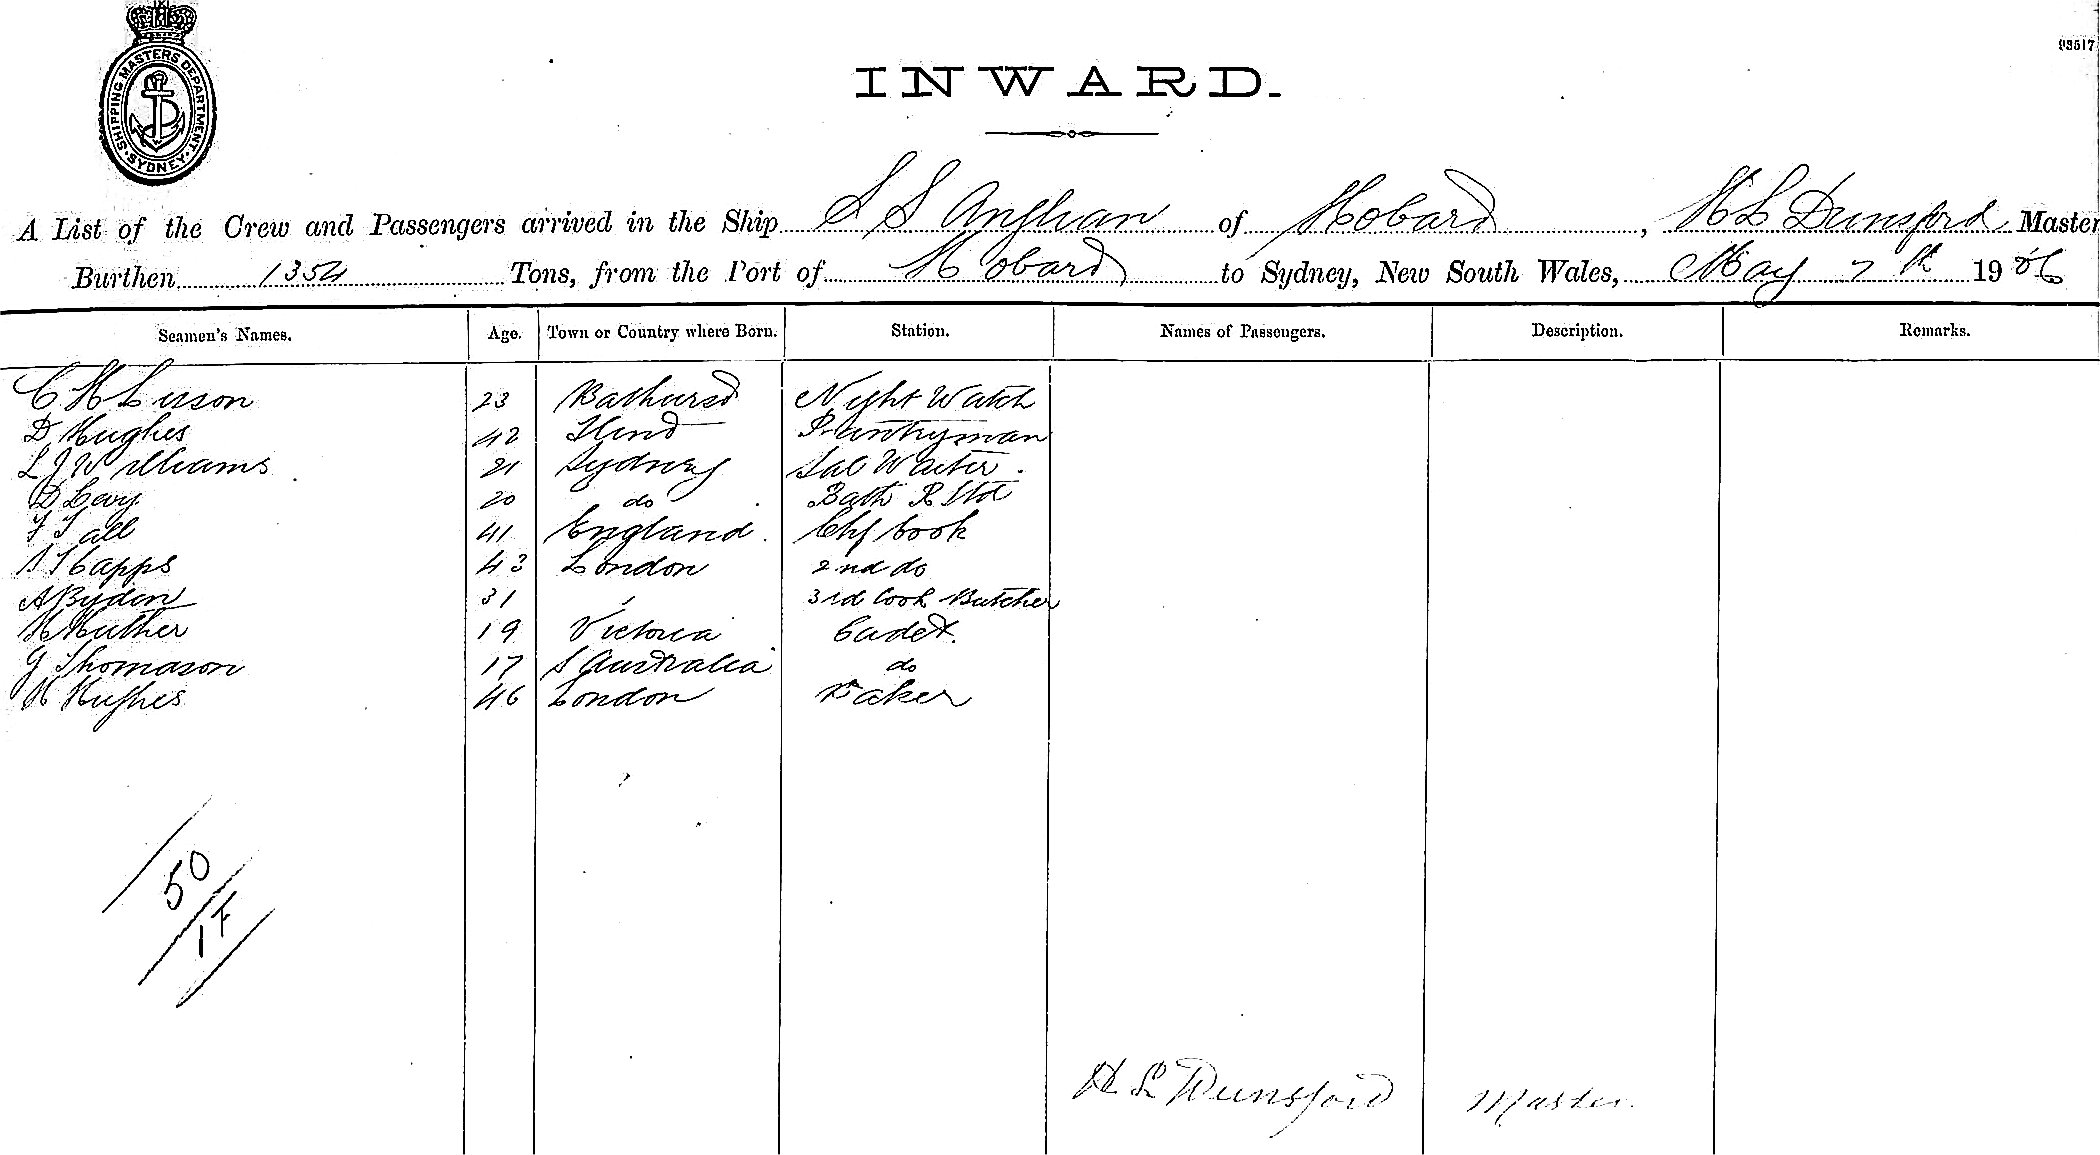 SHIPPING MASTERS DEPARTMENT. SYDNEY.
93517
INWARD.
A List of the Crew and Passengers arrived in the Ship S S Anglian of Hobard, H L Dunsford Master
Burthen 1354 Tons, from the Port of Hobard to Sydney, New South Wales, May 7th 1906
Seamen's Names. Age. Town or Country where Born. Station. Names of Passengers. Description. Remarks.
C H 23 Bathurst Night Watch
D Hughes 42 Pantryman
L J Williams 21 Sydney Sal Waiter.
D Levy 20 do Bath R Std
F Tall 41 England. Chf Cook
Capps 43 London 2nd do
A Bydin 31 3rd Cook Butcher
H Huther 19 Victoria Cadet.
G Thomason 17 S Australia do
H Hughes 46 London Baker
50
17
H L Dunsford Master.